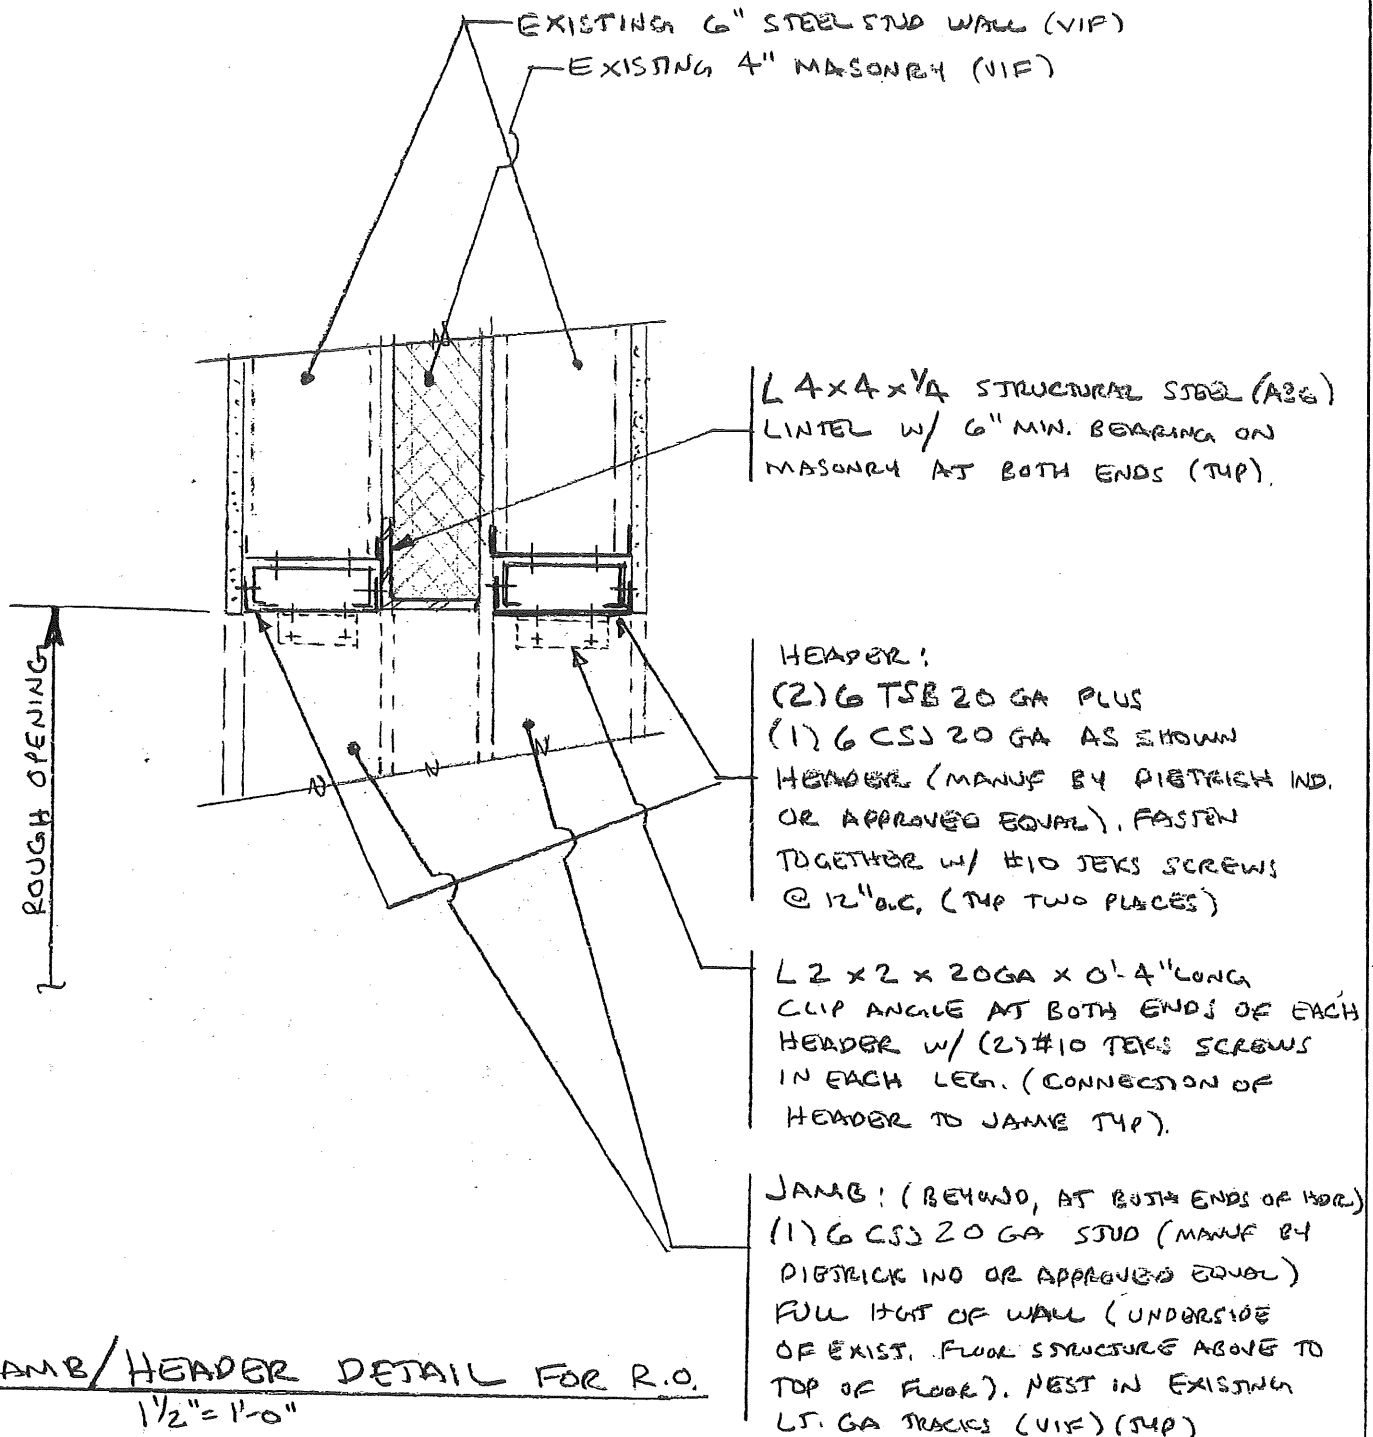 EXISTING 6" STEEL STUD WALL (VIF)
EXISTING 4" MASONRY (VIF)
L 4 x 4 x 1/4 STRUCTURAL STEEL (A36)
LINTEL W/ 6" MIN. BEARING ON
MASONRY AT BOTH ENDS (TYP).
HEADER:
(2) 6 TSB 20 GA PLUS
(1) 6 CSJ 20 GA AS SHOWN
HEADER (MANUF BY DIETRICH IND.
OR APPROVED EQUAL). FASTEN
TOGETHER W/ #10 TEKS SCREWS
@ 12" O.C. (TYP TWO PLACES)
ROUGH OPENING
L 2 x 2 x 20GA x 0'-4" LONG
CLIP ANGLE AT BOTH ENDS OF EACH
HEADER W/ (2) #10 TEKS SCREWS
IN EACH LEG. (CONNECTION OF
HEADER TO JAMB TYP).
JAMB: (BEYOND, AT BOTH ENDS OF HDR)
(1) 6 CSJ 20 GA STUD (MANUF BY
DIETRICK IND OR APPROVED EQUAL)
FULL HGT OF WALL (UNDERSIDE
OF EXIST. FLOOR STRUCTURE ABOVE TO
TOP OF FLOOR). NEST IN EXISTING
LT. GA TRACKS (VIF) (TYP)
AMB/HEADER DETAIL FOR R.O.
1 1/2" = 1'-0"